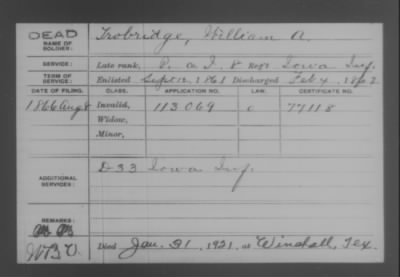 DEAD
NAME OF SOLDIER: Trobridge, William A.
SERVICE: Late rank, P. Co. I, 8 Reg't Iowa Inf.
TERM OF SERVICE: Enlisted Sept 12, 1861 Discharged Feb 4, 1862
DATE OF FILING. CLASS. APPLICATION NO. LAW. CERTIFICATE NO.
1866 Aug 8 Invalid, 113069 77118
Widow,
Minor,
ADDITIONAL SERVICES: D 33 Iowa Inf.
REMARKS:
Died Jan. 31, 1921, at Winchall, Tex.